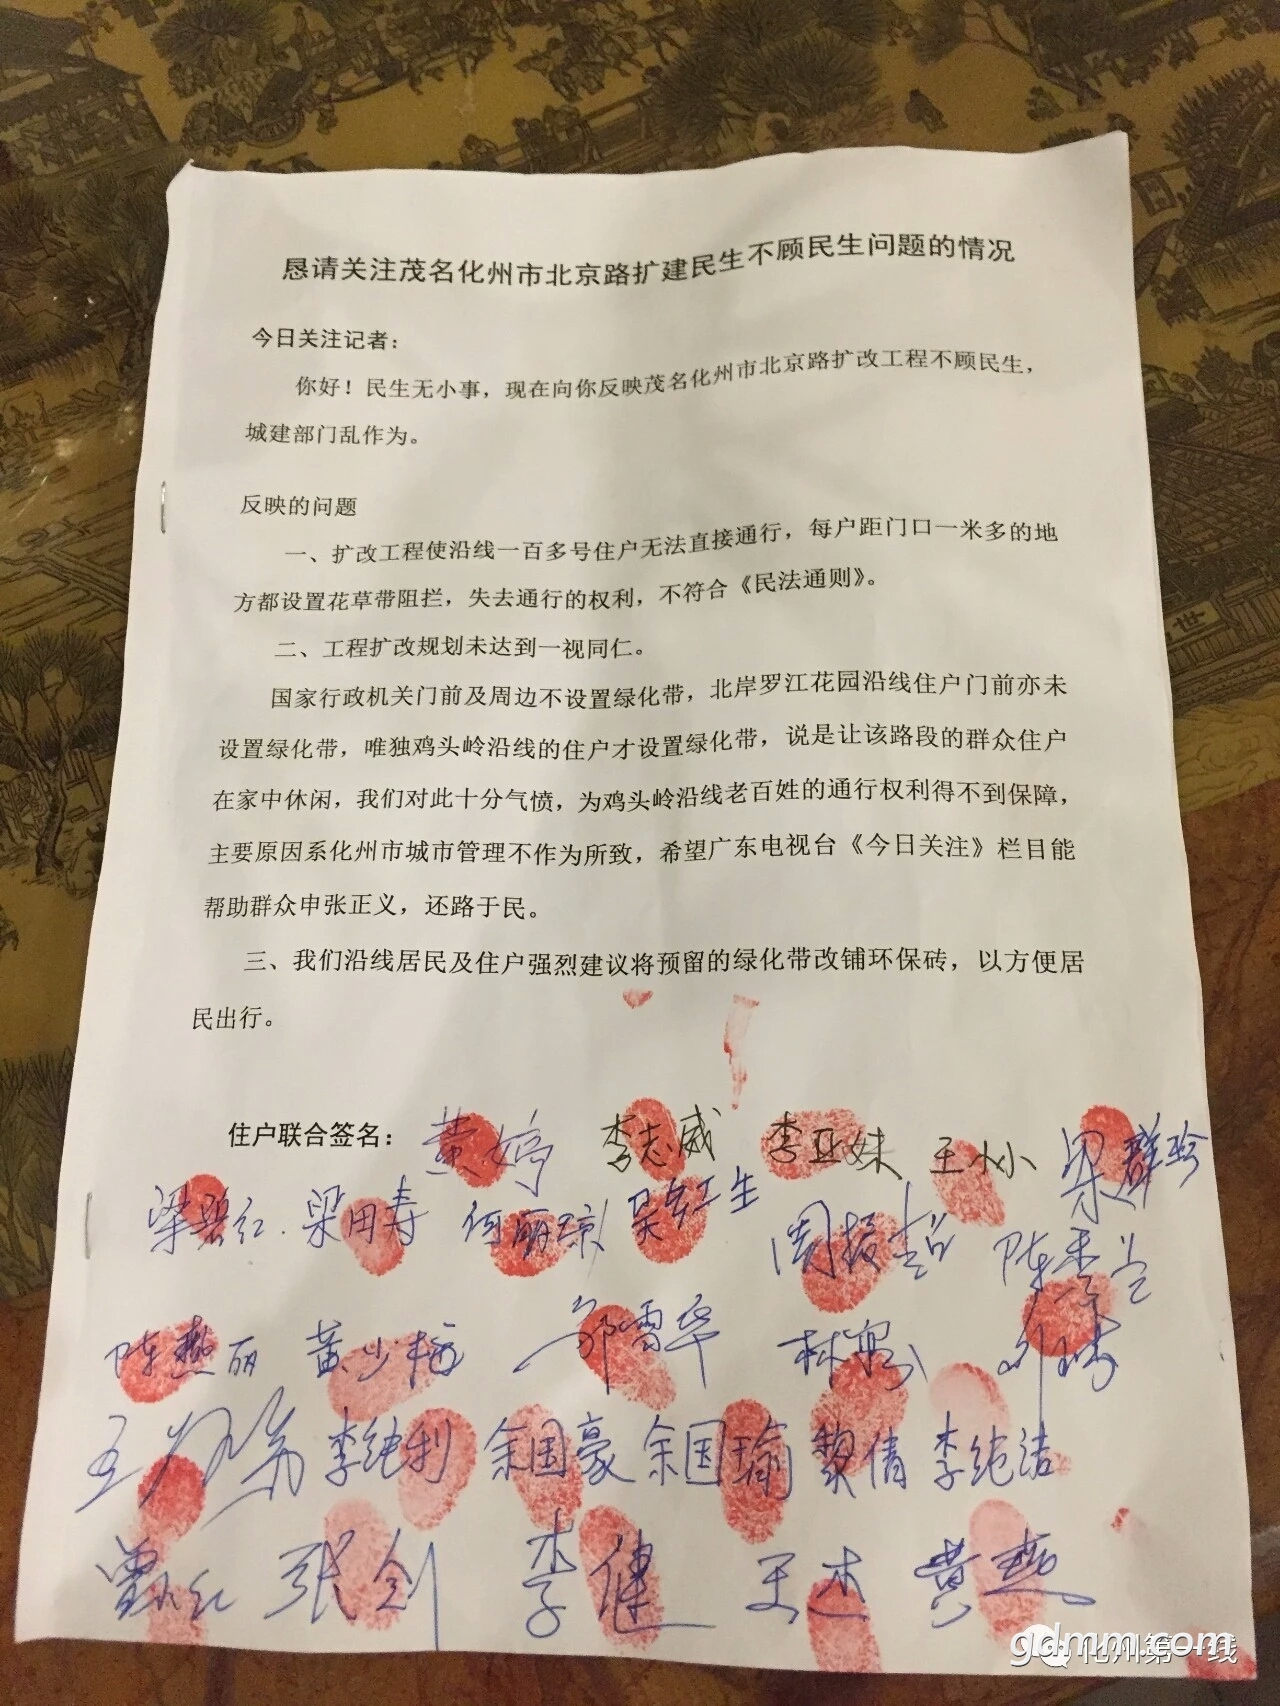 恳请关注茂名化州市北京路扩建民生不顾民生问题的情况
今日关注记者：
你好！民生无小事，现在向你反映茂名化州市北京路扩改工程不顾民生，
城建部门乱作为。
反映的问题
一、扩改工程使沿线一百多号住户无法直接通行，每户距门口一米多的地
方都设置花草带阻拦，失去通行的权利，不符合《民法通则》。
二、工程扩改规划未达到一视同仁。
国家行政机关门前及周边不设置绿化带，北岸罗江花园沿线住户门前亦未
设置绿化带，唯独鸡头岭沿线的住户才设置绿化带，说是让该路段的群众住户
在家中休闲，我们对此十分气愤，为鸡头岭沿线老百姓的通行权利得不到保障，
主要原因系化州市城市管理不作为所致，希望广东电视台《今日关注》栏目能
帮助群众申张正义，还路于民。
三、我们沿线居民及住户强烈建议将预留的绿化带改铺环保砖，以方便居
民出行。
住户联合签名：黄婷 李志威 李亚妹 王小小 梁群珍
梁碧红 梁田寿 何丽琼
陈燕丽 黄少梅 邹雪华
李纯利 余国豪 余国瑜 黎倩 李纯洁
张剑 李健 王杰 黄燕
gdmm.com
化州第一线